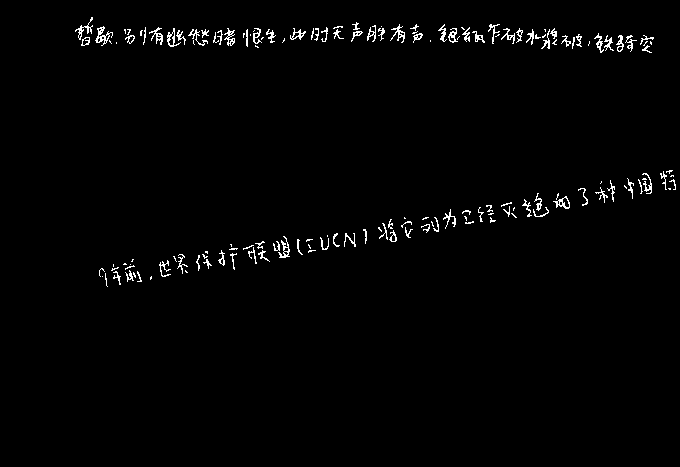 暂歇.别有幽愁暗恨生,此时无声胜有声.银瓶乍破水浆破,铁骑突
9年前,世界保护联盟(IUCN)将它列为已经灭绝的了种中国特